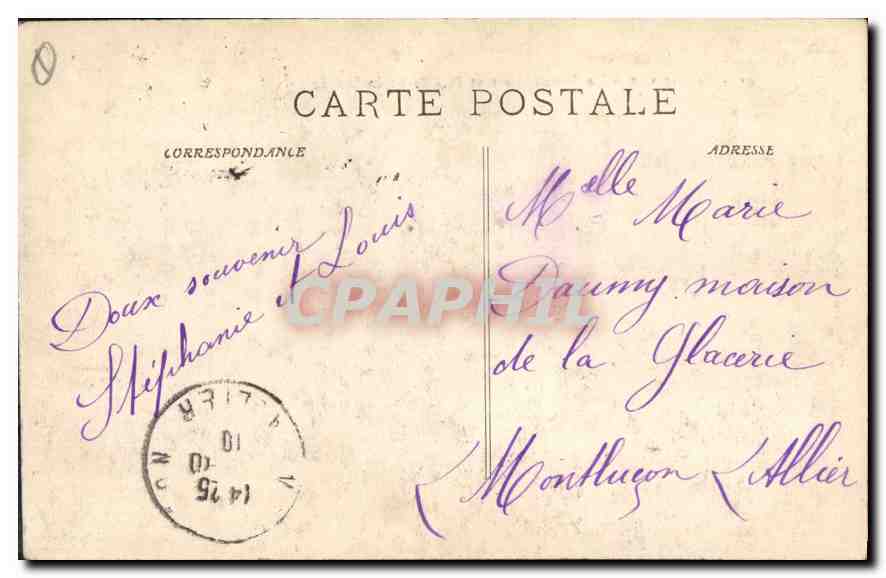 CARTE POSTALE
CORRESPONDANCE
ADRESSE
Doux souvenir
Stéphanie et Louis
Melle Marie
Daumy maison
de la Glacerie
Montluçon Allier
CPAPHIL
ALLIER
14 25
10
10